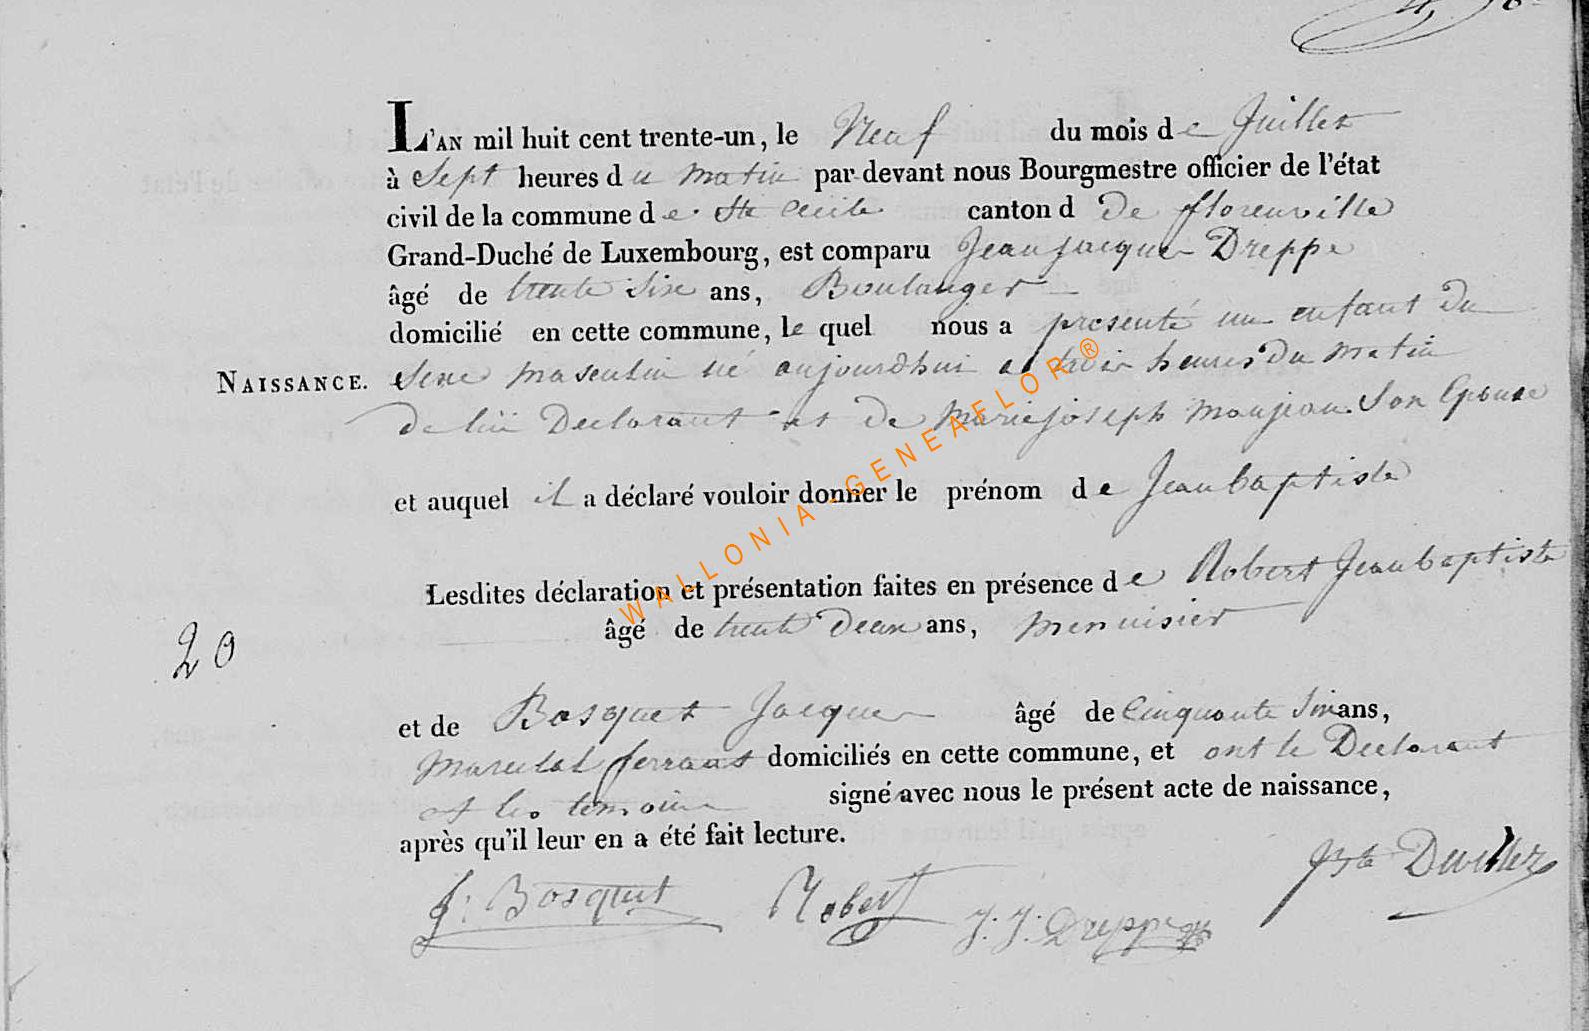 L'AN mil huit cent trente-un, le Neuf du mois de Juillet
à Sept heures du matin par-devant nous Bourgmestre officier de l'état
civil de la commune de Ste Cecile canton d De florenville
Grand-Duché de Luxembourg, est comparu Jean Jacques Dreppe
âgé de trente Six ans, Boulanger
domicilié en cette commune, le quel nous a presenté un enfant Du
NAISSANCE. Sexe masculin né aujourdhui a trois heures Du matin
De lui Declarant et de Marie joseph Monjean Son Epouse
et auquel il a déclaré vouloir donner le prénom de Jean baptiste
Lesdites déclaration et présentation faites en présence de Robert Jean baptiste
âgé de trente Deux ans, menuisier
20
et de Bosquet Jacques âgé de Cinquante Six ans,
Marechal ferrant domiciliés en cette commune, et ont le Declarant
et les temoins signé avec nous le présent acte de naissance,
après qu'il leur en a été fait lecture.
J: Bosquet Robert J. J. Dreppe
WALLONIA-GENEAFLOR ®